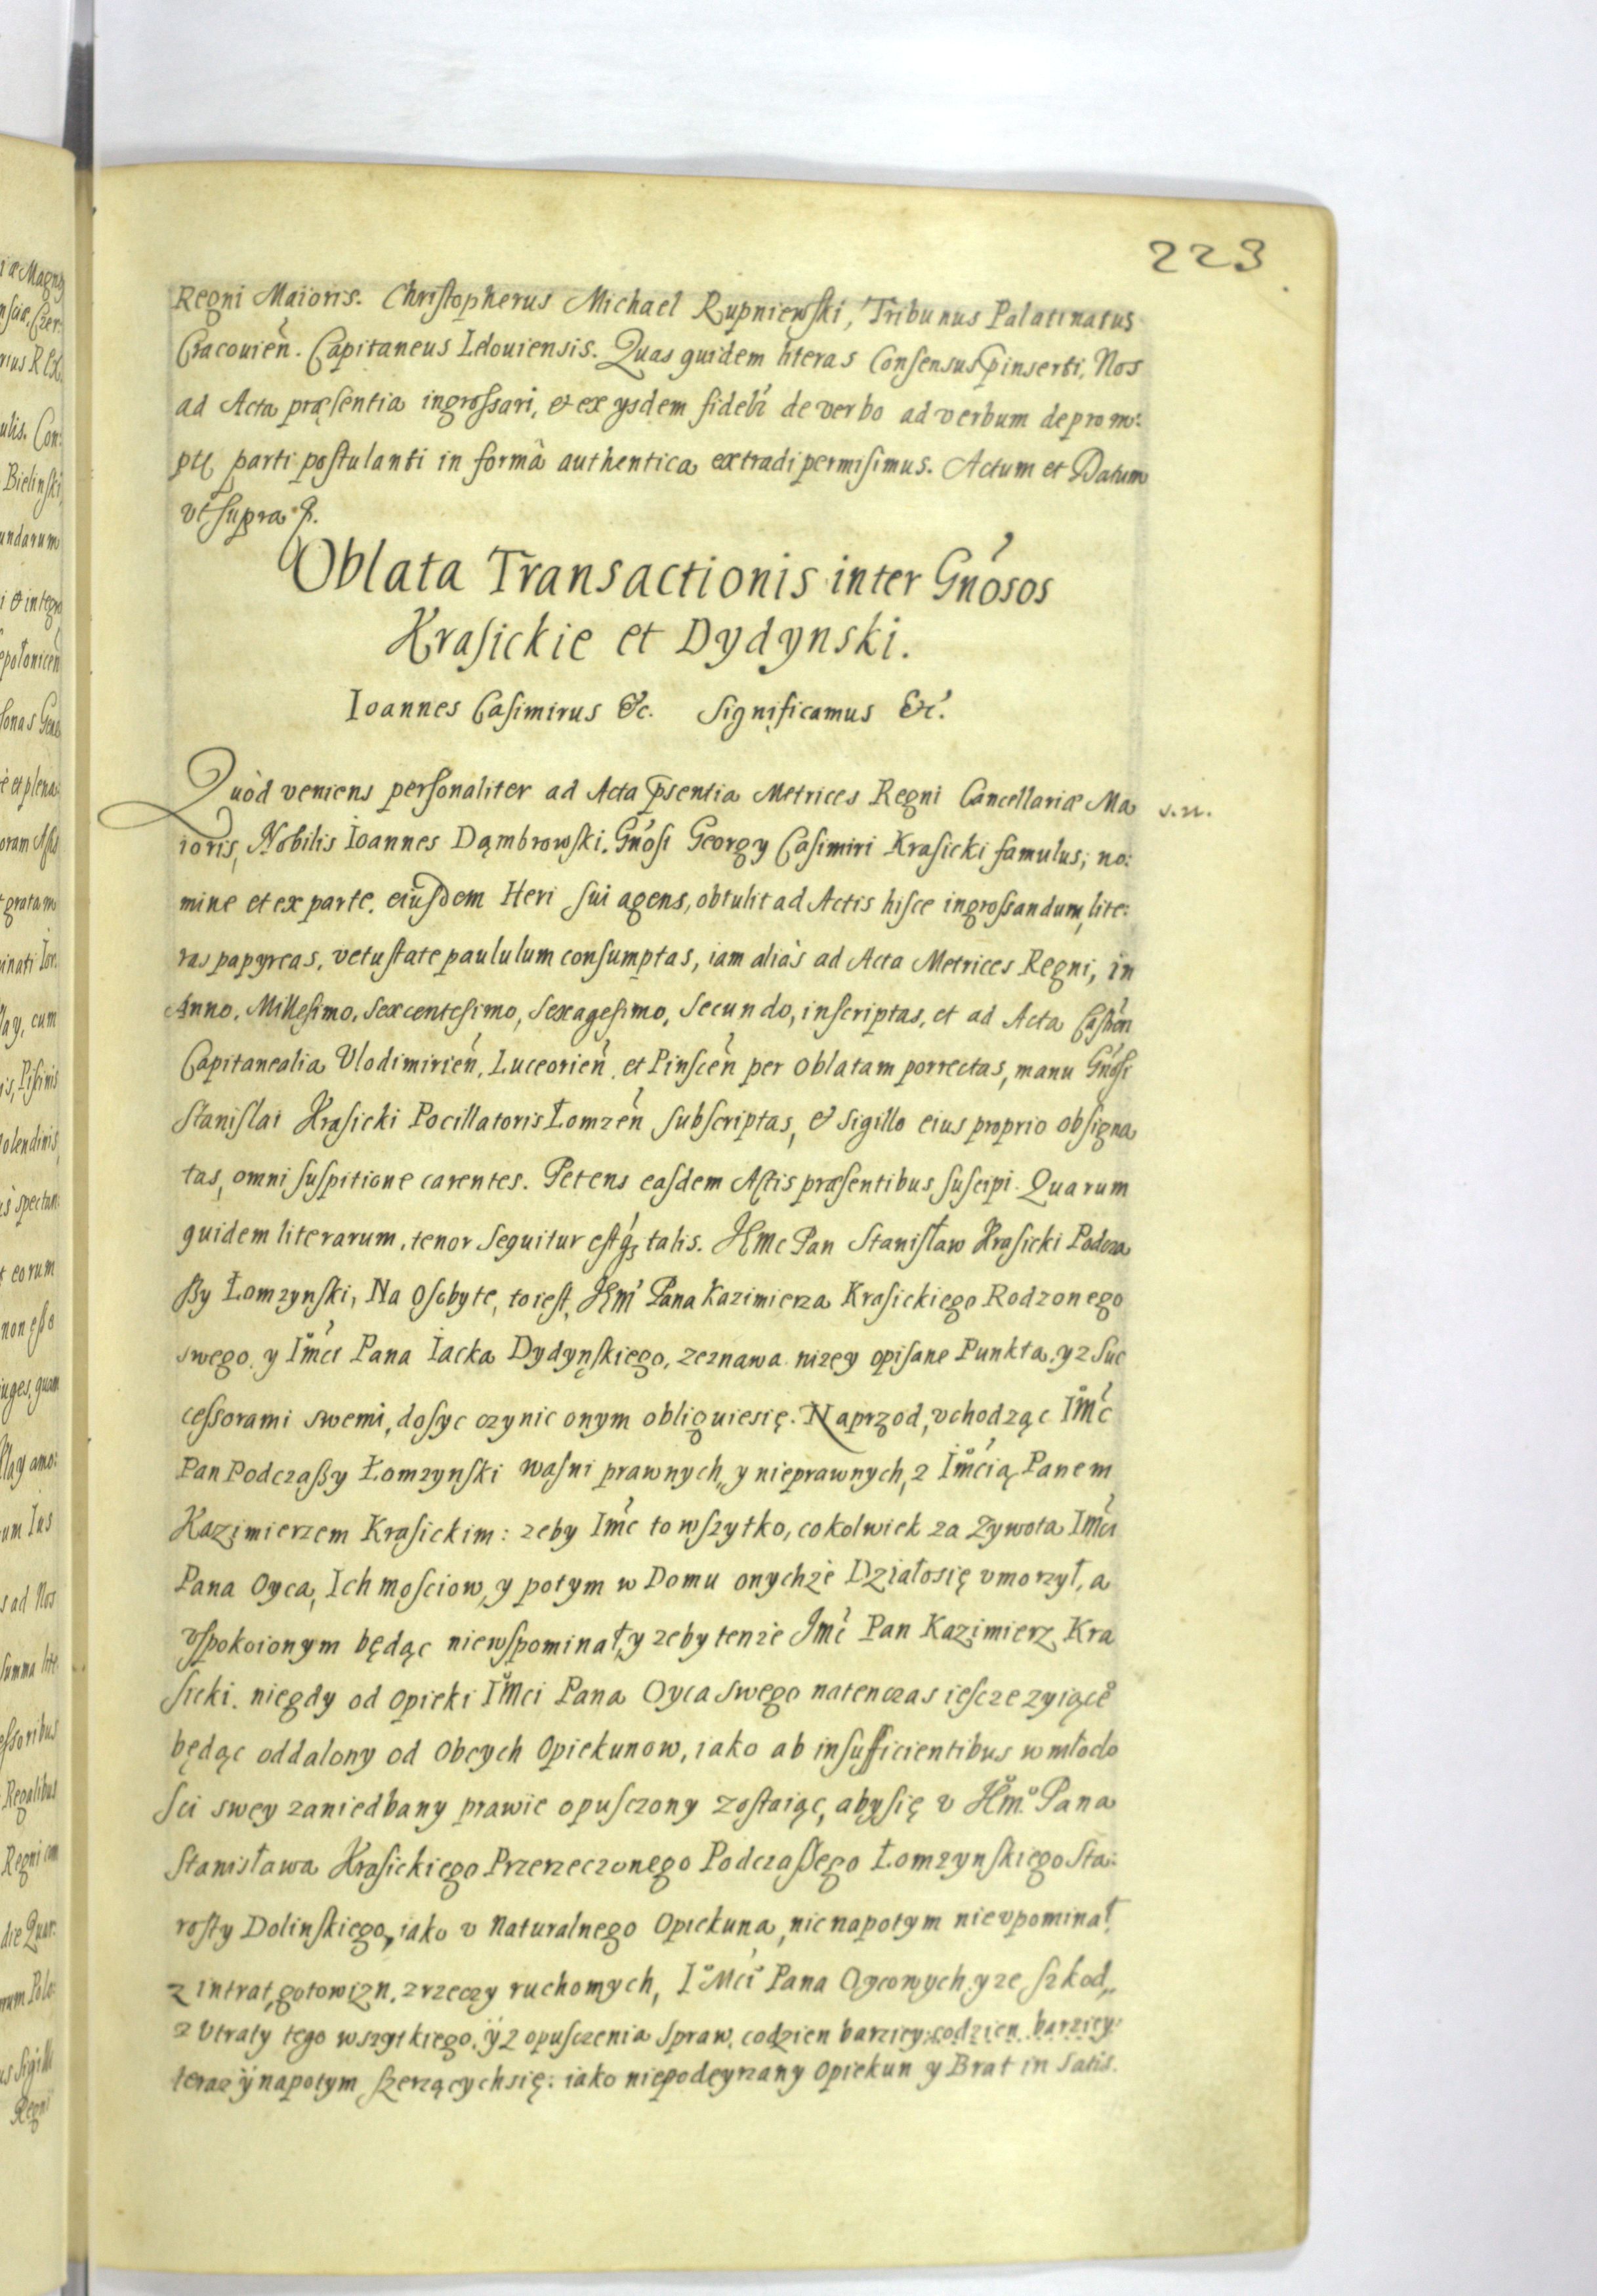 223
Regni Maioris. Christopherus Michael Rupniewski, Tribunus Palatinatus
Cracouień. Capitaneus Lelouiensis. Quas quidem literas Consensus pinserti, Nos
ad Acta præsentia ingrossari, et ex ysdem fidelr de verbo ad verbum deprom:
ptę parti postulanti in formâ authentica extradi permisimus. Actum et Datum
vt supra
Oblata Transactionis inter Gnósos
Krasickie et Dydynski.
Ioannes Casimirus &c. Significamus &c.
Quòd veniens personaliter ad Acta pśentia Metrices Regni Cancellariæ Ma
s.n.
ioris, Nobilis Ioannes Dąmbrowski. Gnósi Georgy Casimiri Krasicki famulus, no:
mine et ex parte eiusdem Heri sui agens, obtulit ad Actis hisce ingrossandum, lite:
ras papyreas, vetustate paululum consumptas, iam aliàs ad Acta Metrices Regni, in
Anno. Millesimo, sexcentesimo, sexagesimo, secundo, inscriptas, et ad Acta Castren
Capitanealia Vlodimirień, Luceorień, et Pinsceń per oblatam porrectas, manu Gnósi
Stanislai Krasicki Pocillatoris Łomzeń subscriptas, & sigillo eius proprio obsigna
tas, omni suspitione carentes. Petens easdem Actis præsentibus suscipi. Quarum
quidem literarum, tenor sequitur estq́ talis. Jḿc Pan Stanisław Krasicki Podcza
ßy Łomzynski, Na Osoby te, to iest, Jm̃ Pana Kazimierza Krasickiego Rodzonego
swego y Imći Pana Iacka Dydyńskiego, zeznawa nizey opisane Punkta, y z Suc
cessorami swemi, dosyc czynic onym obliguiesię. Naprzod, vchodząc Im̊ć
Pan Podczaßy Łomzynski wasni prawnych, y nieprawnych, z Im̊ćią Panem
Kazimierzem Krasickim: zeby Imć to wszytko, cokolwiek za zywota Imći
Pana Oyca, Ich mosciow, y potym w Domu onychże Działosię vmorzył, a
vspokoionym będąc niewspominał, y zeby tenże Jmć Pan Kazimierz Kra
sicki. niegdy od opieki Im̊ci Pana Oyca swego natenczas iescze zyiące̊
będąc oddalony od Obcych Opiekunow, iako ab insufficientibus w młodo
sci swey zaniedbany prawie opusczony zostaiąc, abysię v Jm̊ Pana
Stanisława Krasickiego Przerzeczonego Podczaßego Łomzynskiego Sta:
rosty Dolinskiego, iako v Naturalnego Opiekuna, nic napotym nie vpominał,
z intrat, gotowizn, z rzeczy ruchomych, I̊mći Pana Oycowych y ze szkod,
z Vtraty tego wszytkiego, ÿ z opusczenia spraw, codzien barziey codzien barziey
teraz ÿ napotym szerzących się: iako niepodeyrzany Opiekun y Brat in Satis.